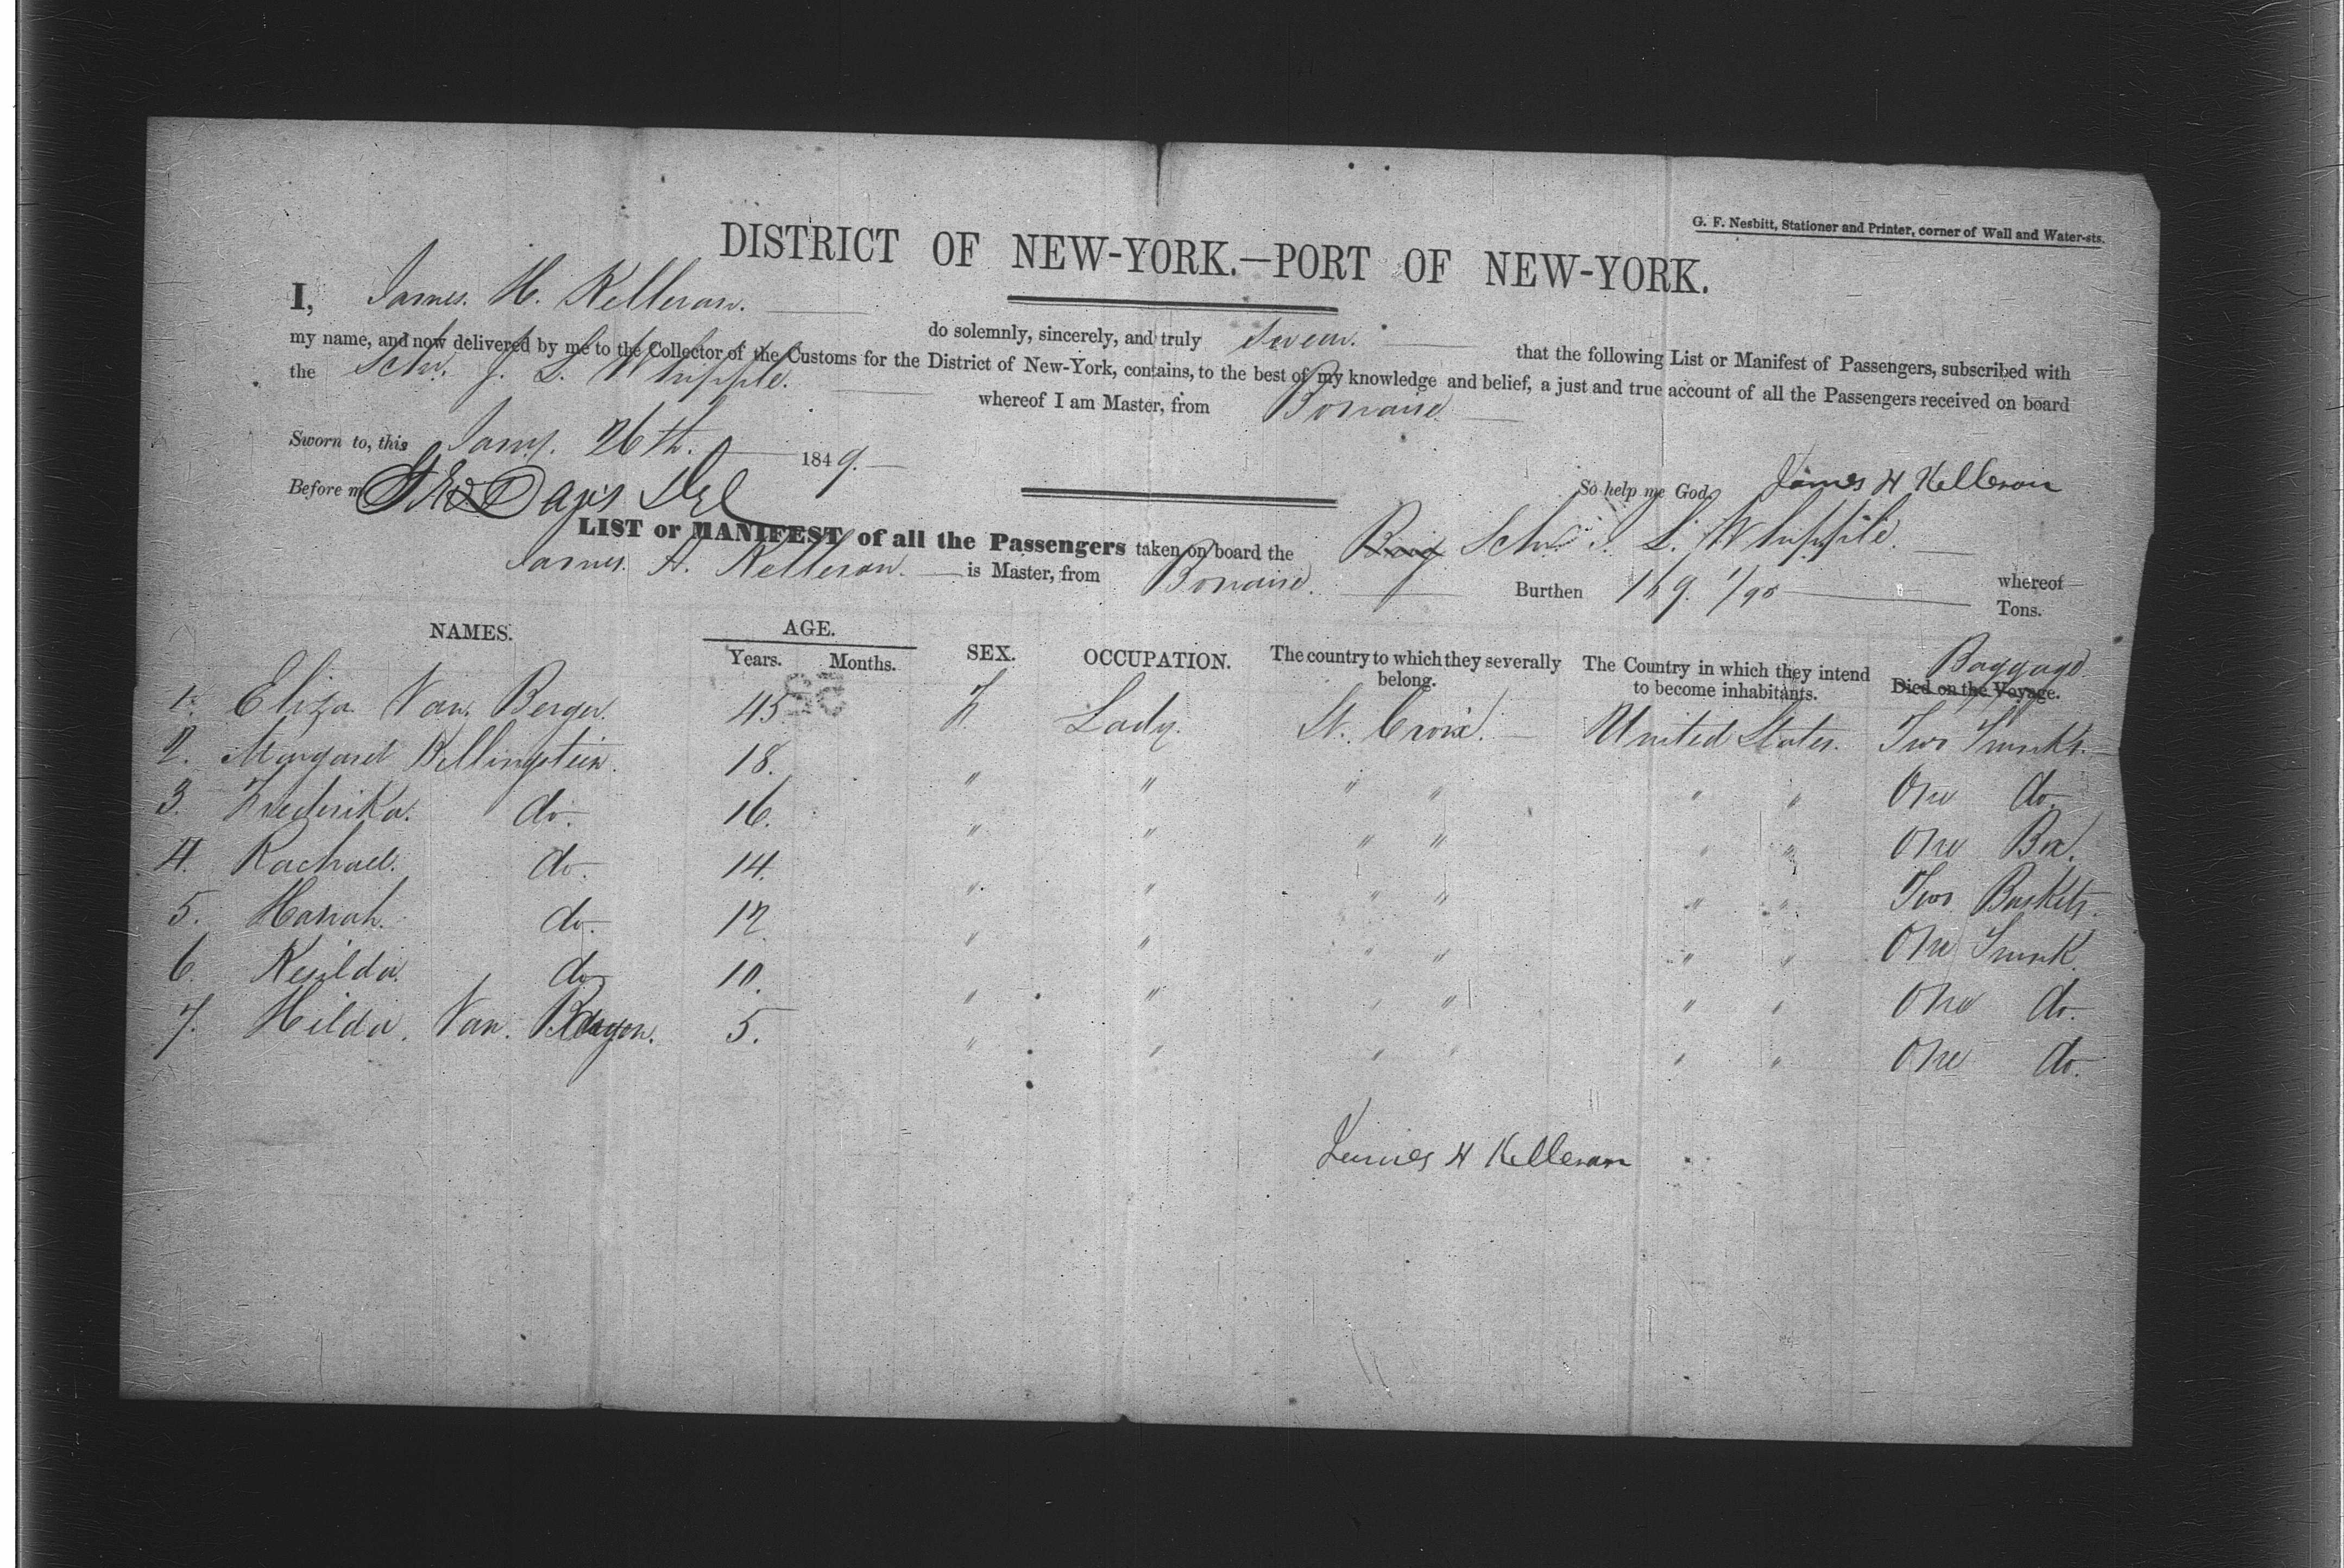 G. F. Nesbitt, Stationer and Printer, corner of Wall and Water-sts.
DISTRICT OF NEW-YORK.—PORT OF NEW-YORK.
I, James. H. Kelleran. do solemnly, sincerely, and truly Swear. that the following List or Manifest of Passengers, subscribed with
my name, and now delivered by me to the Collector of the Customs for the District of New-York, contains, to the best of my knowledge and belief, a just and true account of all the Passengers received on board
the Schr. J. L. Whipple. whereof I am Master, from Bonaire
Sworn to, this Jany. 26th. 1849.
So help me God. James H Kelleran
Before m Davis
LIST or MANIFEST of all the Passengers taken on board the Brig Schr. J. L. Whipple. whereof
James. H. Kelleran. is Master, from Bonaire. Burthen 169. 1/95 Tons.
NAMES. AGE. Years. Months. SEX. OCCUPATION. The country to which they severally belong. The Country in which they intend to become inhabitants. Baggage. Died on the Voyage.
1. Eliza Van. Berger. 45 F Lady. St. Croix. United States. Two Trunks.
2. Margaret Bellingstein. 18. " " " " " " One do.
3. Frederika. do. 16. " " " " " " One Box.
4. Rachael. do. 14. " " " " " " Two Baskets.
5. Hanah. do. 12. " " " " " " One Trunk.
6. do 10. " " " " " " One do.
7. Hilda. Van. 5. " " " " " " One do.
James H Kelleran